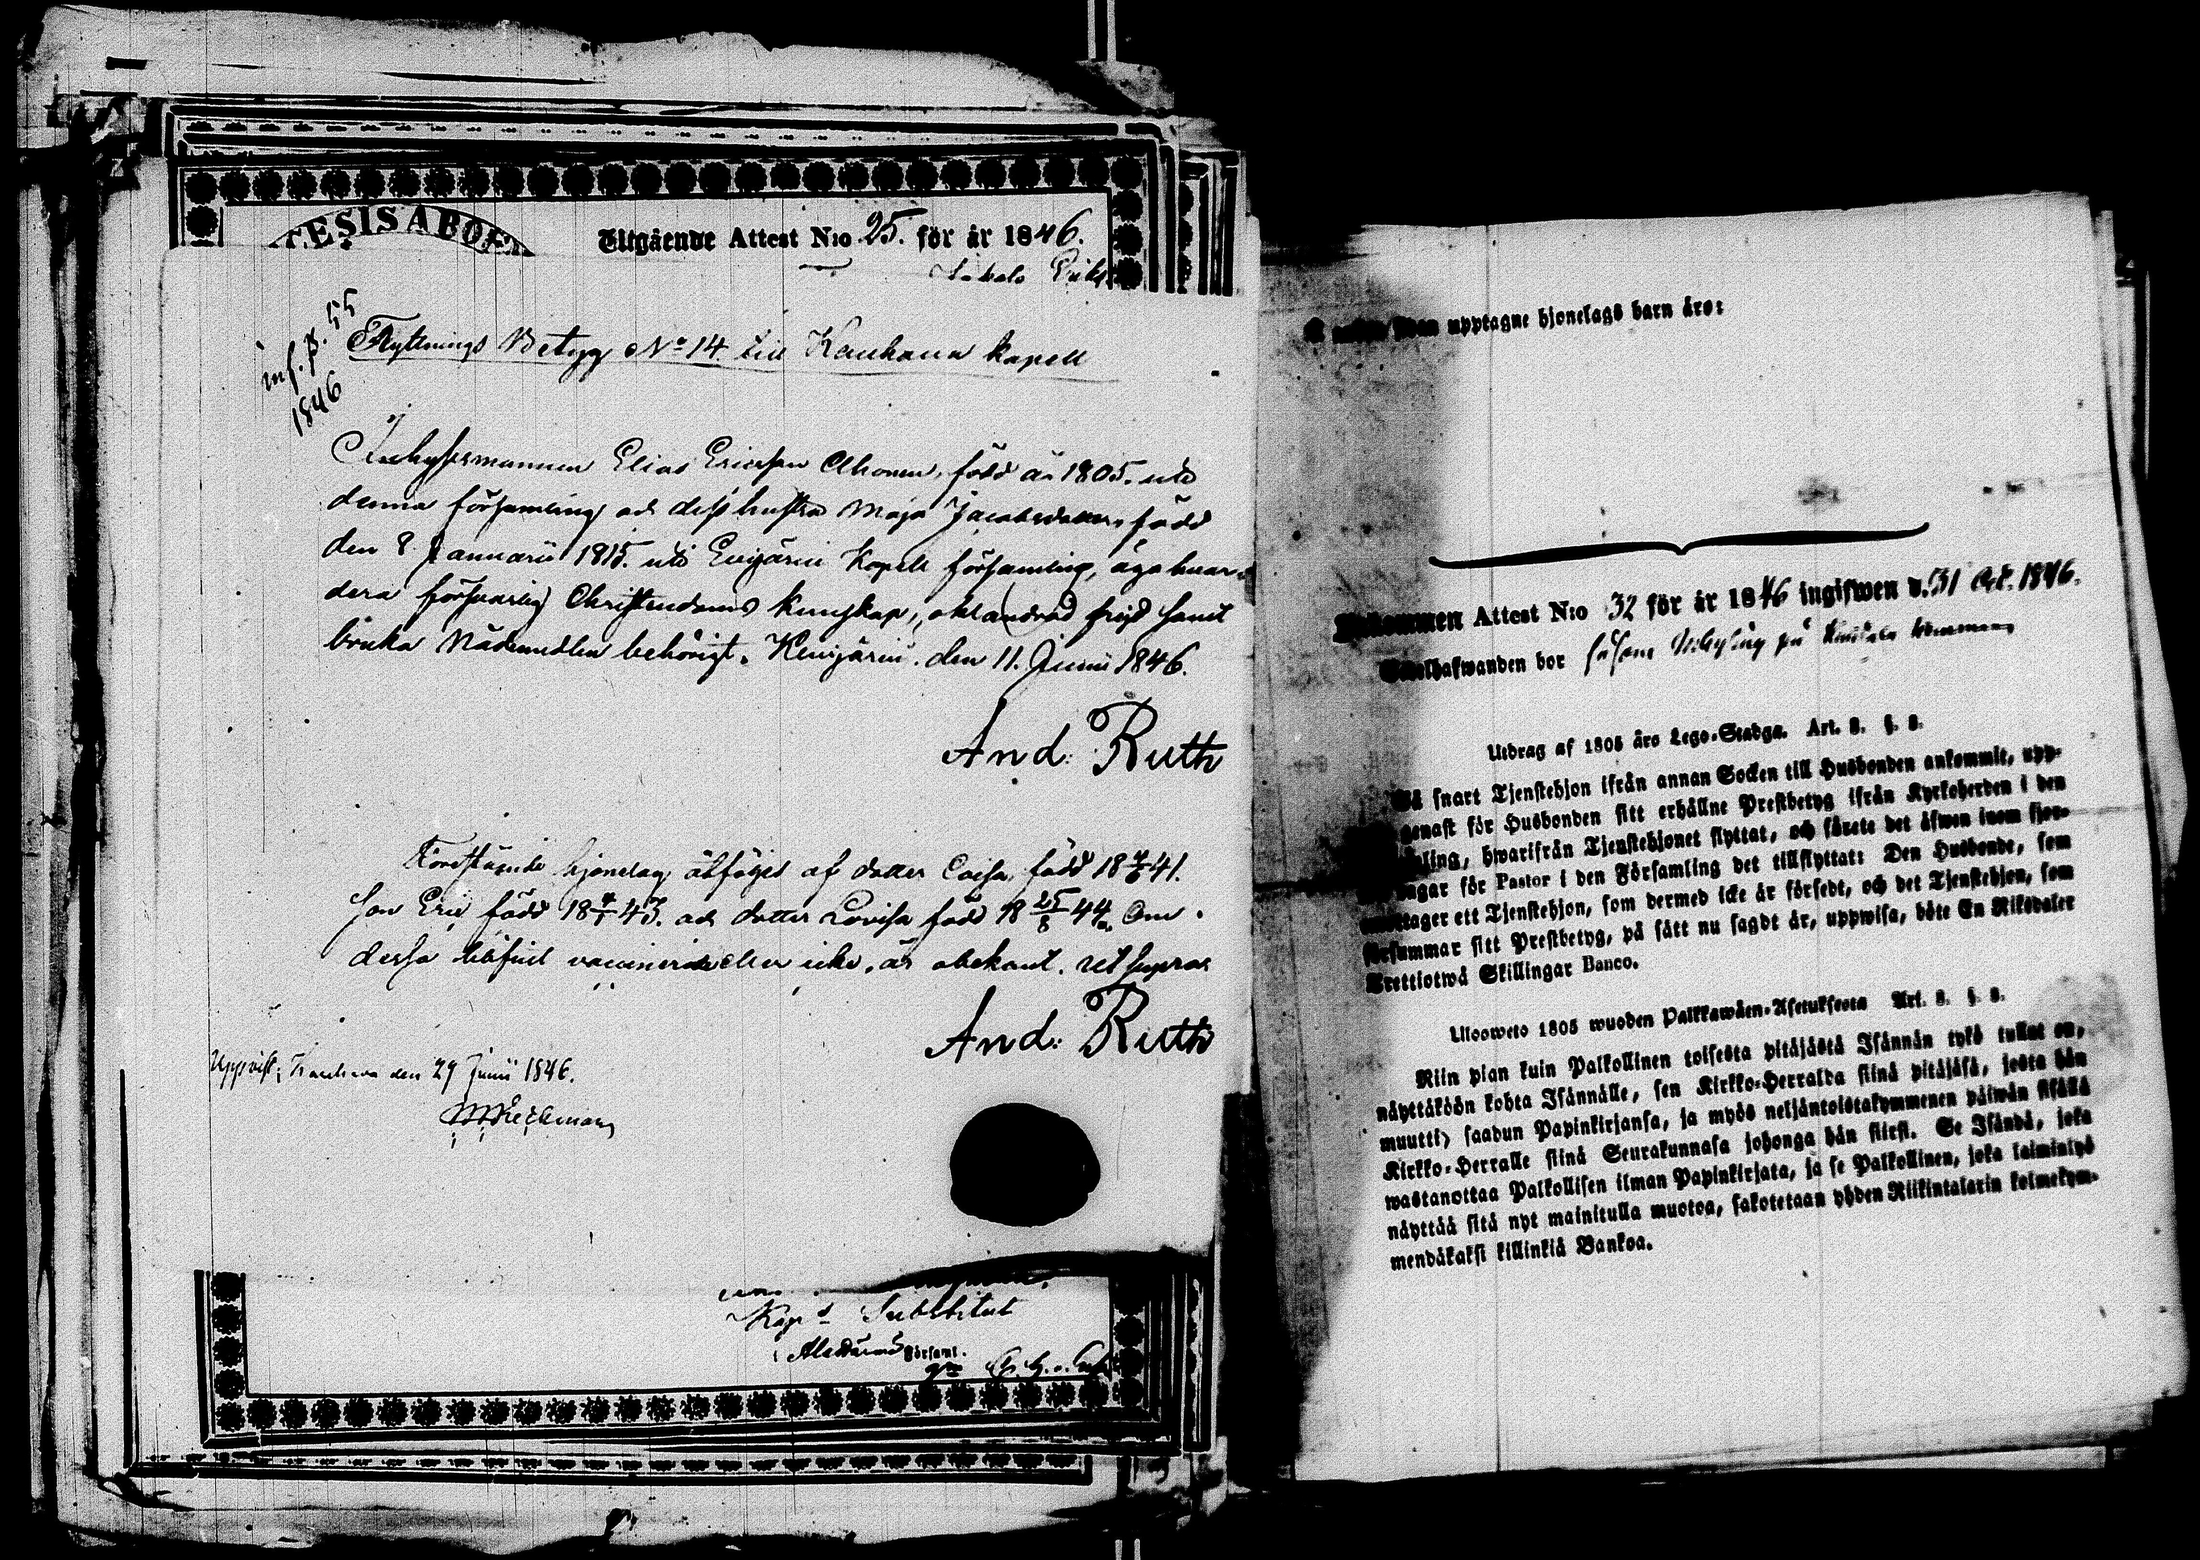 Utgående Attest N:o 25. för år 1846.
inf. p. 55
1846
Flyttnings Betyg No 14 till Kauhava kapell
Inhysesmannen Elias Ericsson Ahonen, född år 1805. uti
denna församling och dess hustru Maja Jacobsdotter, född
den 8 Januarii 1815. uti Evijärvi Kapells församling, äga hvar-
dera försvarlig Christendoms kunskap, oklandrad frejd samt
bruka Nådemedlen behörigt. Evijärvi den 11. Junii 1846.
And: Ruth
Förestående hjonelag åtföljes af dotter Caisa, född 18 41.
son Eric född 18 43. och dotter Lovisa född 18 25/8 44. Om
dessa blifvit vaccinerade eller icke, är obekant. ut supra
And: Ruth
Uppvist; Kauhava den 29 Junii 1846.
Kap. Substitut
Förfaml.
upptagne hjonelags barn äro:
Attest N:o 32 för år 1846 ingifwen d. 31 Oct. 1846.
bor såsom Inhysing på
Utdrag af 1805 års Lego-Stadga. Art. 8. §. 8.
Så snart Tjenstehjon ifrån annan Socken till Husbonden ankommit, upp-
genast för Husbonden sitt erhållne Prestbetyg ifrån Kyrkoherden i den
hwarifrån Tjenstehjonet flyttat, och förete det äfwen inom fjor-
för Pastor i den Församling det tillflyttat: Den Husbonde, som
ett Tjenstehjon, som dermed icke är försedt, och det Tjenstehjon, som
försummar sitt Prestbetyg, på sätt nu sagdt är, uppwisa, böte En Riksdaler
Trettiotwå Skillingar Banco.
Ulosweto 1805 wuoden Palkkawäen-Asetuksesta Art. 8. §. 8.
Niin pian kuin Palkollinen toisesta pitäjästä Isännän tykö tullut on,
näyttäköön kohta Isännälle, sen Kirkko-Herralda siinä pitäjäsä, josta hän
muutti, saadun Papinkirjansa, ja myös neljäntoistakymmenen päiwän sisällä
Kirkko-Herralle siinä Seurakunnasa johonga hän siirsi. Se Isändä, joka
wastanottaa Palkollisen ilman Papinkirjata, ja se Palkollinen, joka laiminlyö
näyttää sitä nyt mainitulla muotoa, sakotetaan yhden Riikintalarin kolmekym-
mendäkaksi killinkiä Bankoa.